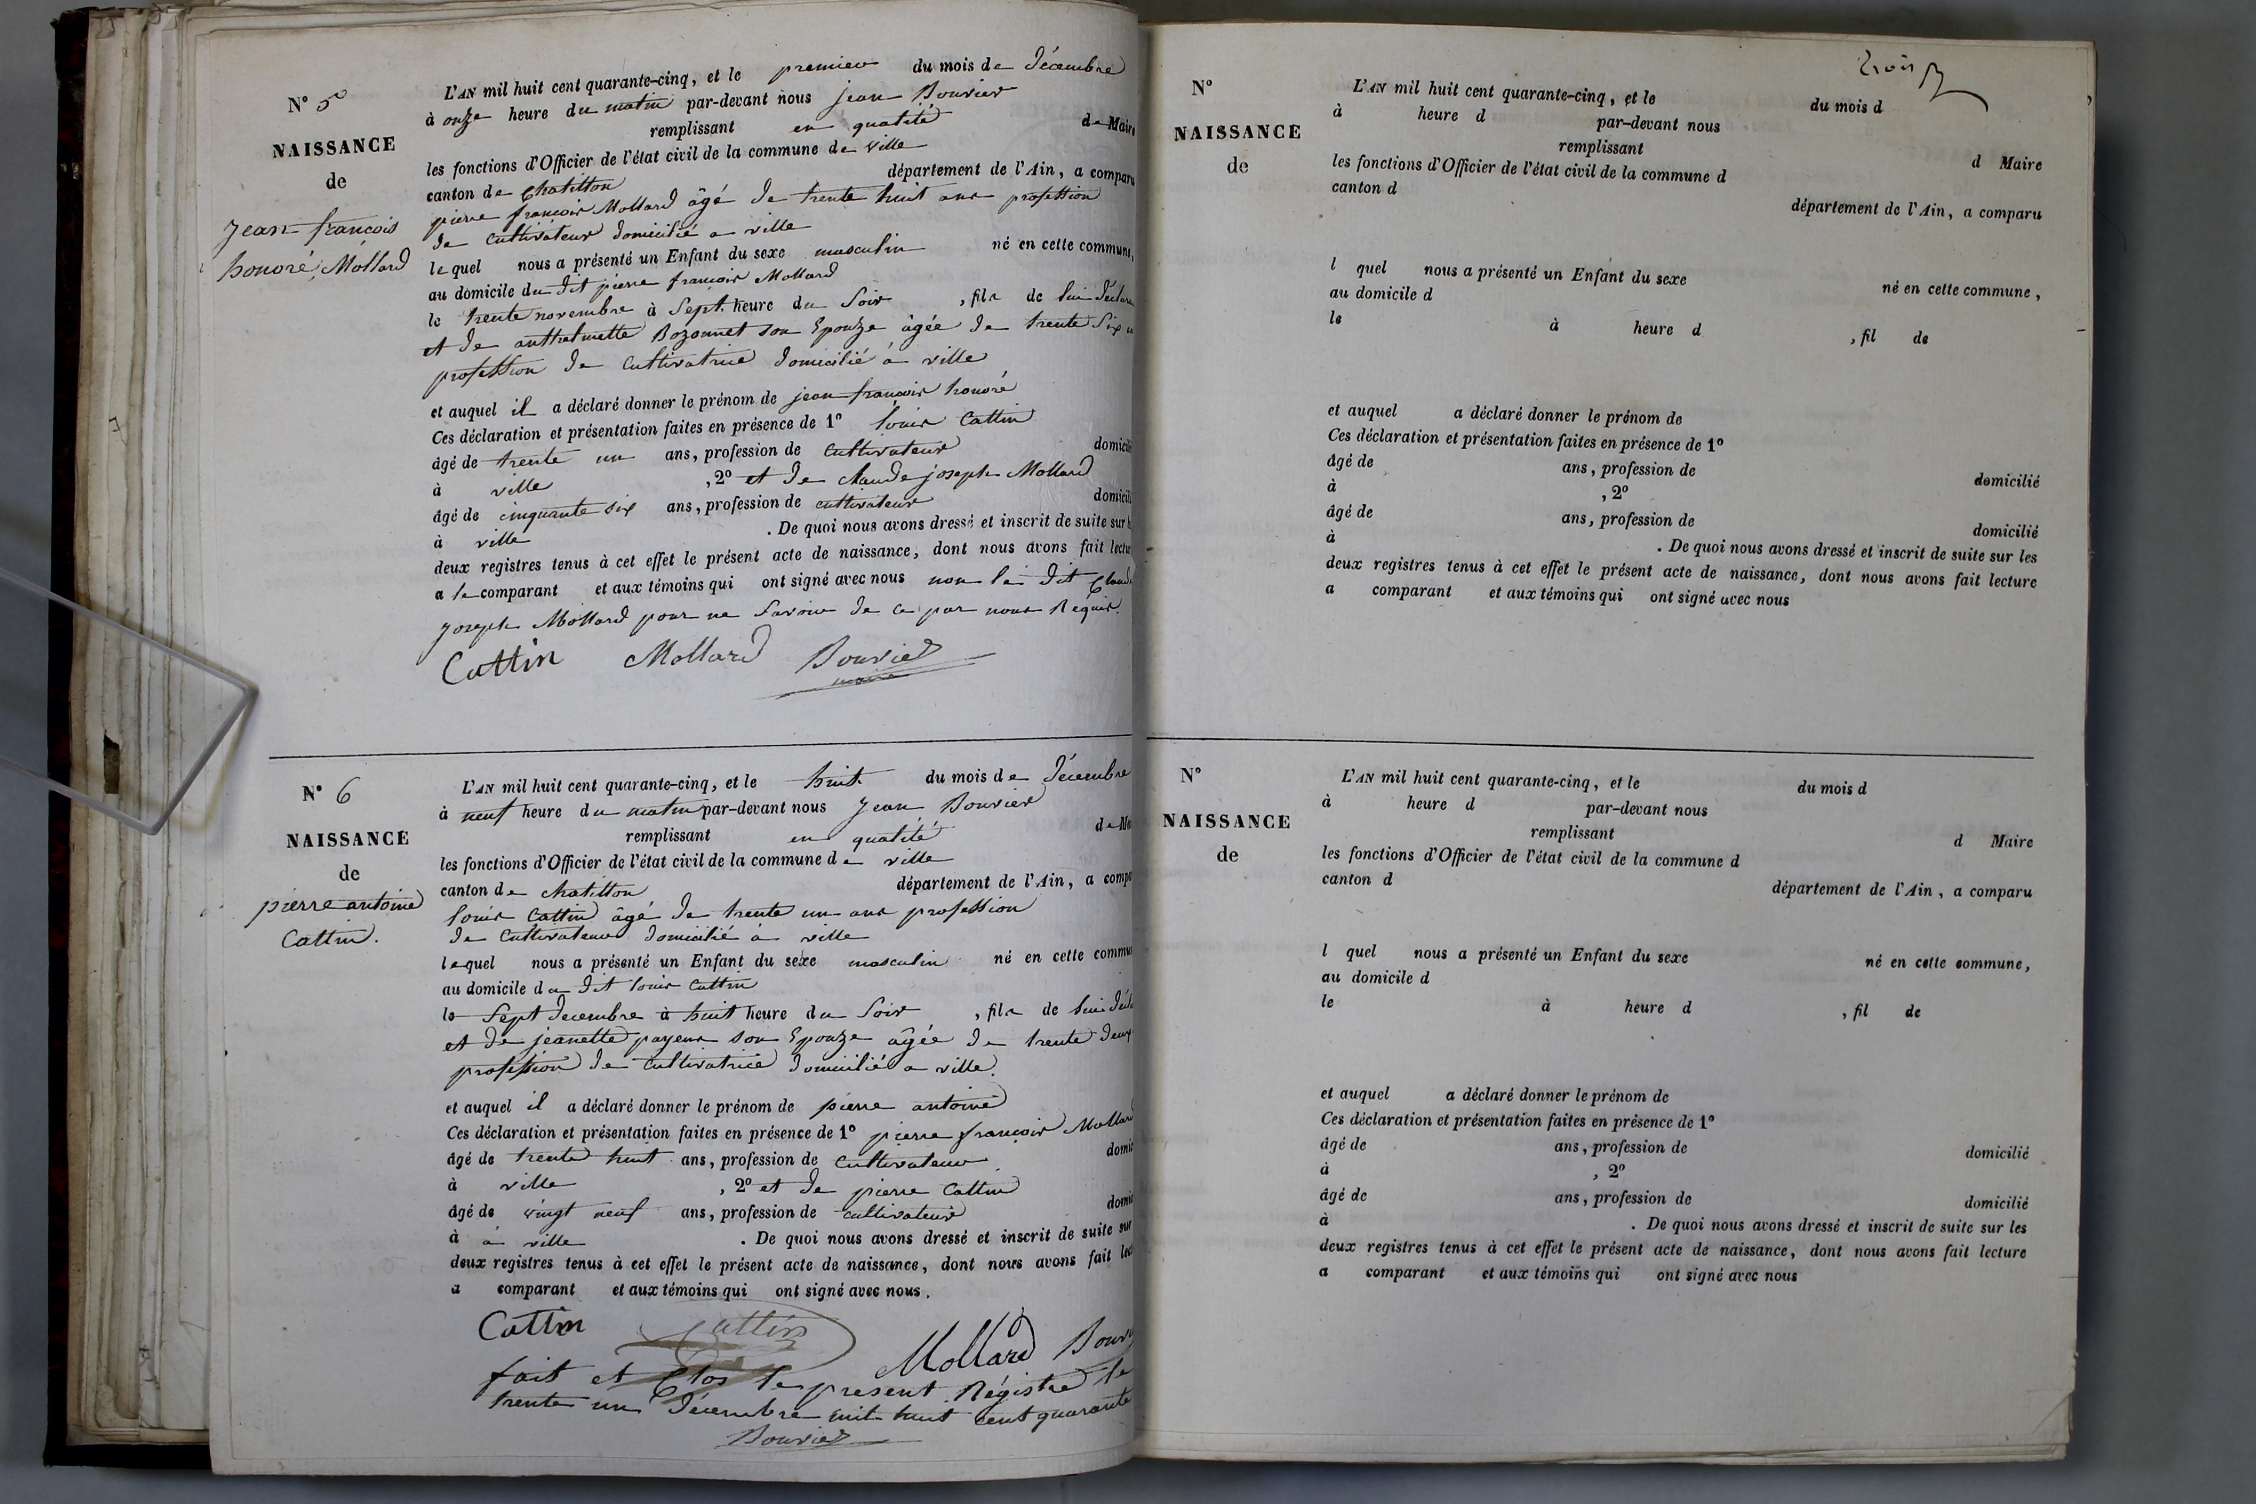 N° 5
NAISSANCE
de
jean françois
honoré Mollard
L'AN mil huit cent quarante-cinq, et le premier du mois de décembre
à onze heure du matin par-devant nous jean Bouvier
remplissant en qualité de Maire
les fonctions d'Officier de l'état civil de la commune de ville
canton de Chatillon département de l'Ain, a comparu
pierre françois Mollard âgé de trente huit ans profession
de cultivateur domicilié a ville
lequel nous a présenté un Enfant du sexe masculin né en cette commune,
au domicile du dit pierre françois Mollard
le trente novembre à Sept heure du Soir , fils de lui
et de anthelmette Bozonnet son Epouze âgée de trente Six
profession de cultivatrice domicilié à ville
et auquel il a déclaré donner le prénom de jean françois honoré
Ces déclaration et présentation faites en présence de 1° louis Cattin
âgé de trente un ans, profession de cultivateur
à ville , 2° et de claude joseph Mollard
âgé de cinquante six ans, profession de cultivateur
à ville . De quoi nous avons dressé et inscrit de suite sur
deux registres tenus à cet effet le présent acte de naissance, dont nous avons fait
a le comparant et aux témoins qui ont signé avec nous non le dit
joseph Mollard pour ne Savoir de ce par nous Réquis.
Cattin Mollard Bouvier
maire
N° 6
NAISSANCE
de
pierre antoine
Cattin.
L'AN mil huit cent quarante-cinq, et le huit du mois de décembre
à neuf heure du matin par-devant nous jean Bouvier
remplissant en qualité
les fonctions d'Officier de l'état civil de la commune de ville
canton de chatillon département de l'Ain, a
louis Cattin âgé de trente un ans profession
de Cultivateur domicilié à ville
lequel nous a présenté un Enfant du sexe masculin né en cette
au domicile du dit louis Cattin
le Sept decembre à huit heure du Soir , fils de lui
et de jeanette payens son Epouze âgée de trente deux
profession de cultivatrice domicilié a ville.
et auquel il a déclaré donner le prénom de pierre antoine
Ces déclaration et présentation faites en présence de 1° pierre françois Mollard
âgé de trente huit ans, profession de cultivateur
à ville , 2° et de pierre Cattin
âgé de vingt neuf ans, profession de cultivateur
à à ville . De quoi nous avons dressé et inscrit de suite sur
deux registres tenus à cet effet le présent acte de naissance, dont nous avons fait
a comparant et aux témoins qui ont signé avec nous.
Cattin Cattin Mollard
fait et Clos le present Régistre le
trente un décembre mil huit cent quarante
Bouvier
trois
N°
NAISSANCE
de
L'AN mil huit cent quarante-cinq, et le du mois d
à heure d par-devant nous
remplissant d Maire
les fonctions d'Officier de l'état civil de la commune d
canton d département de l'Ain, a comparu
l quel nous a présenté un Enfant du sexe né en cette commune,
au domicile d
le à heure d , fil de
et auquel a déclaré donner le prénom de
Ces déclaration et présentation faites en présence de 1°
âgé de ans, profession de domicilié
à , 2°
âgé de ans, profession de domicilié
à . De quoi nous avons dressé et inscrit de suite sur les
deux registres tenus à cet effet le présent acte de naissance, dont nous avons fait lecture
a comparant et aux témoins qui ont signé avec nous
N°
NAISSANCE
de
L'AN mil huit cent quarante-cinq, et le du mois d
à heure d par-devant nous
remplissant d Maire
les fonctions d'Officier de l'état civil de la commune d
canton d département de l'Ain, a comparu
l quel nous a présenté un Enfant du sexe né en cette commune,
au domicile d
le à heure d , fil de
et auquel a déclaré donner le prénom de
Ces déclaration et présentation faites en présence de 1°
âgé de ans, profession de domicilié
à , 2°
âgé de ans, profession de domicilié
à . De quoi nous avons dressé et inscrit de suite sur les
deux registres tenus à cet effet le présent acte de naissance, dont nous avons fait lecture
a comparant et aux témoins qui ont signé avec nous